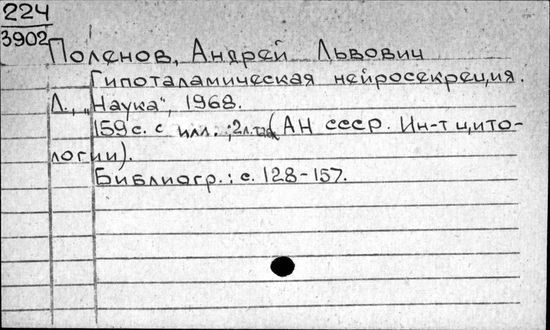 224
3902
Поленов, Андрей Львович
Гипоталамическая нейросекреция.
Л., „Наука", 1968.
159 с. с илл.; 2 л. (АН СССР. Ин-т цито-
логии).
Библиогр.: с. 128-157.